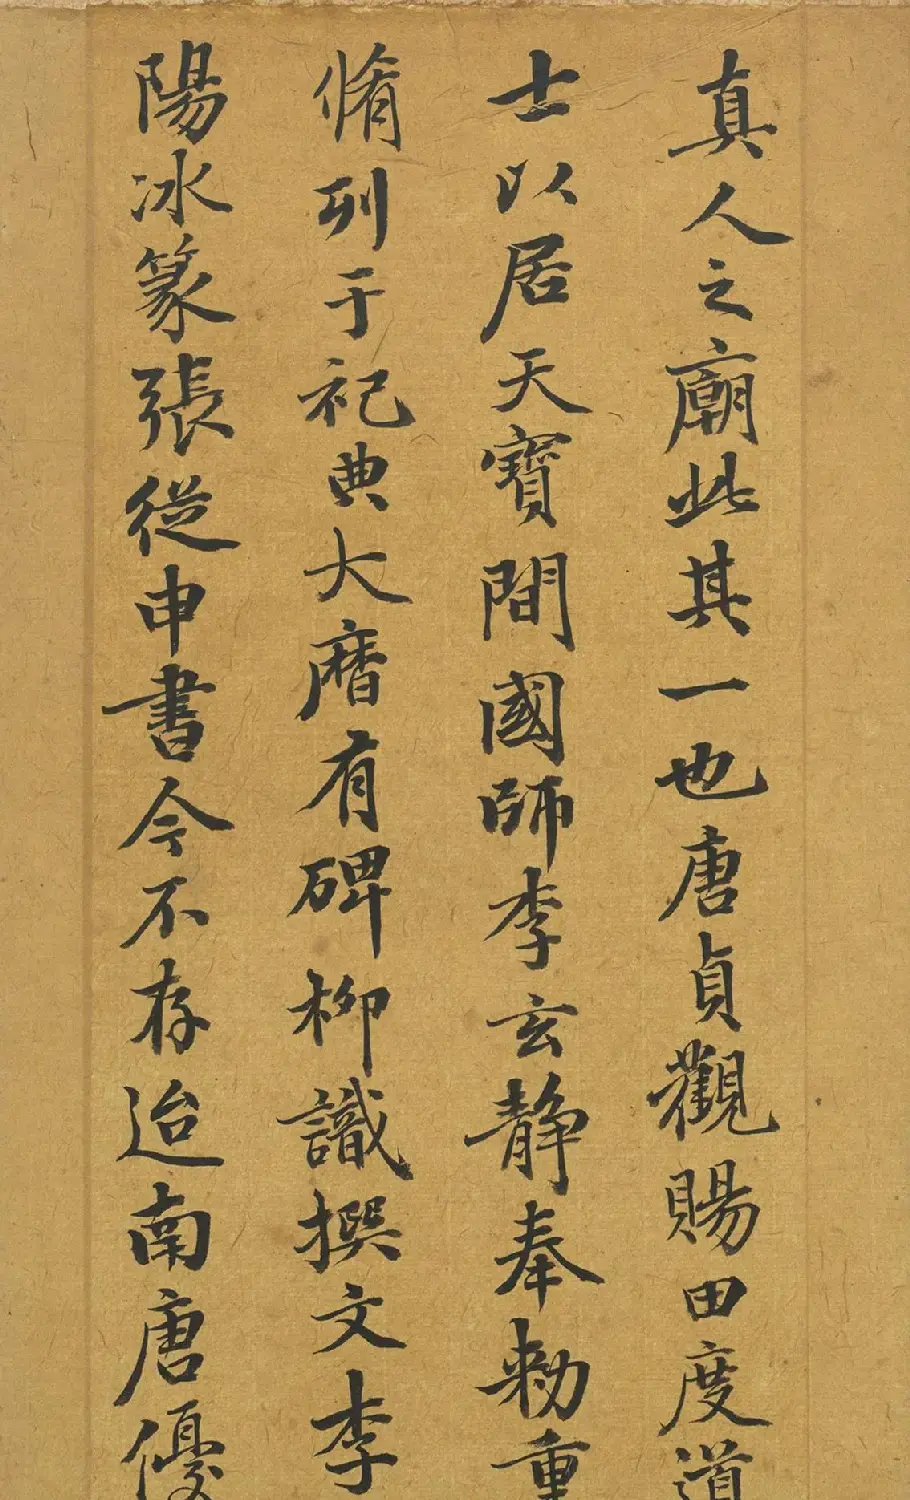 真人之廟此其一也唐貞觀賜田度道
士以居天寶間國師李玄靜奉勑重
脩列于祀典大曆有碑柳識撰文李
陽冰篆張從申書今不存迨南唐優